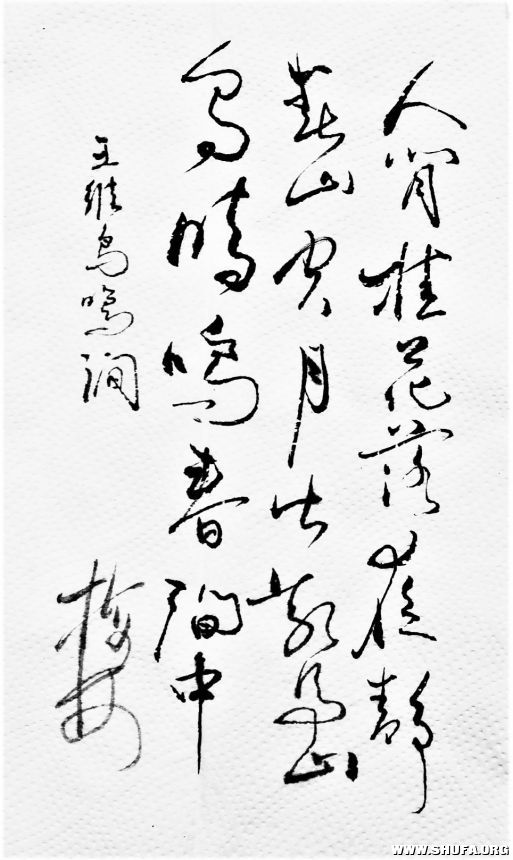 人閒桂花落夜靜
春山空月出驚山
鳥時鳴春澗中
王維鳥鳴澗
WWW.SHUFA.ORG